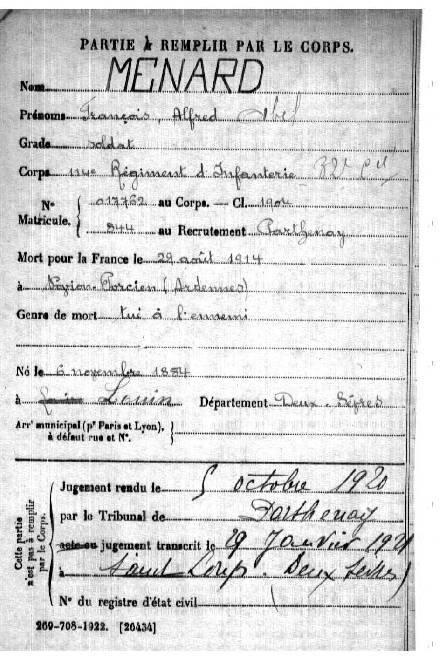 PARTIE à REMPLIR PAR LE CORPS.
Nom MENARD
Prénoms François, Alfred Abel
Grade soldat
Corps 114e Régiment d'Infanterie 32e Cie
N° Matricule. { 017762 au Corps. — Cl. 1904
844 au Recrutement Parthenay
Mort pour la France le 29 août 1914
à Novion-Porcien (Ardennes)
Genre de mort tué à l'ennemi
Né le 6 novembre 1884
à Louin Département Deux-Sèvres
Arr' municipal (pr Paris et Lyon), à défaut rue et N°. }
Cette partie n'est pas à remplir par le Corps.
Jugement rendu le 5 octobre 1920
par le Tribunal de Parthenay
acte ou jugement transcrit le 29 Janvier 1921
à Saint Loup. Deux Sèvres)
N° du registre d'état civil
269-708-1922. [26434]